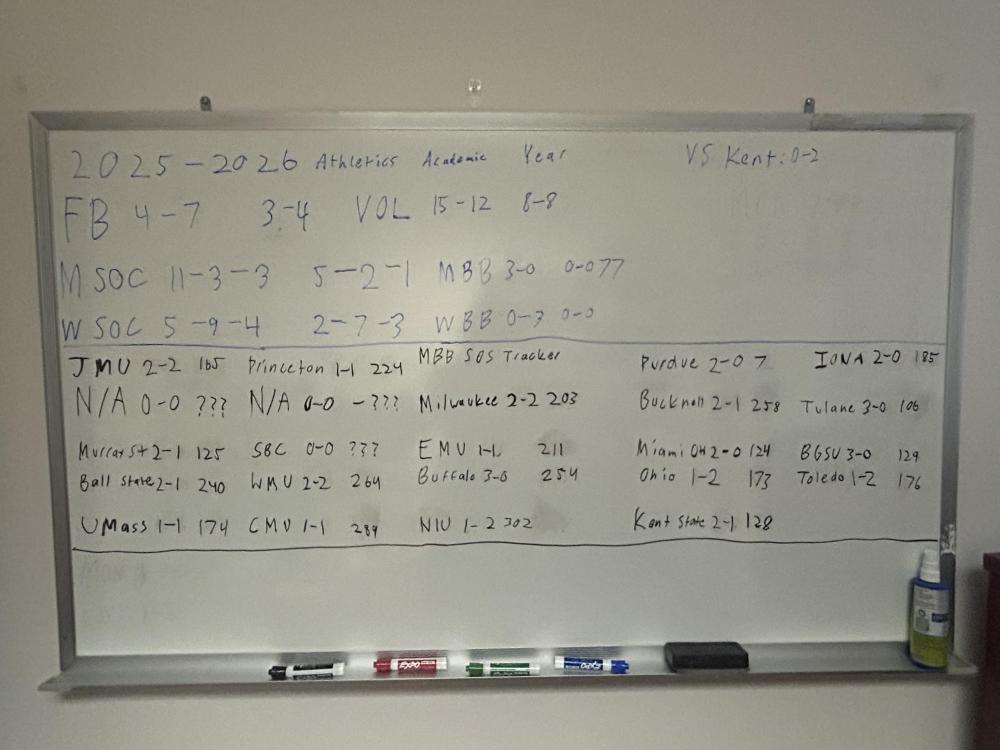 2025-2026 Athletics Academic Year VS Kent: 0-2
FB 4-7 3-4 VOL 15-12 8-8
M SOC 11-3-3 5-2-1 MBB 3-0 0-0 77
W SOC 5-9-4 2-7-3 WBB 0-3 0-0
JMU 2-2 165 Princeton 1-1 224 MBB SOS Tracker Purdue 2-0 7 IONA 2-0 185
N/A 0-0 ??? N/A 0-0 -??? Milwaukee 2-2 203 Bucknell 2-1 258 Tulane 3-0 106
Murray St 2-1 125 SBC 0-0 ??? EMU 1-1 211 Miami OH 2-0 124 BGSU 3-0 129
Ball State 2-1 240 WMU 2-2 264 Buffalo 3-0 254 Ohio 1-2 173 Toledo 1-2 176
UMass 1-1 174 CMU 1-1 289 NIU 1-2 302 Kent State 2-1 128
EXPO
EXPO